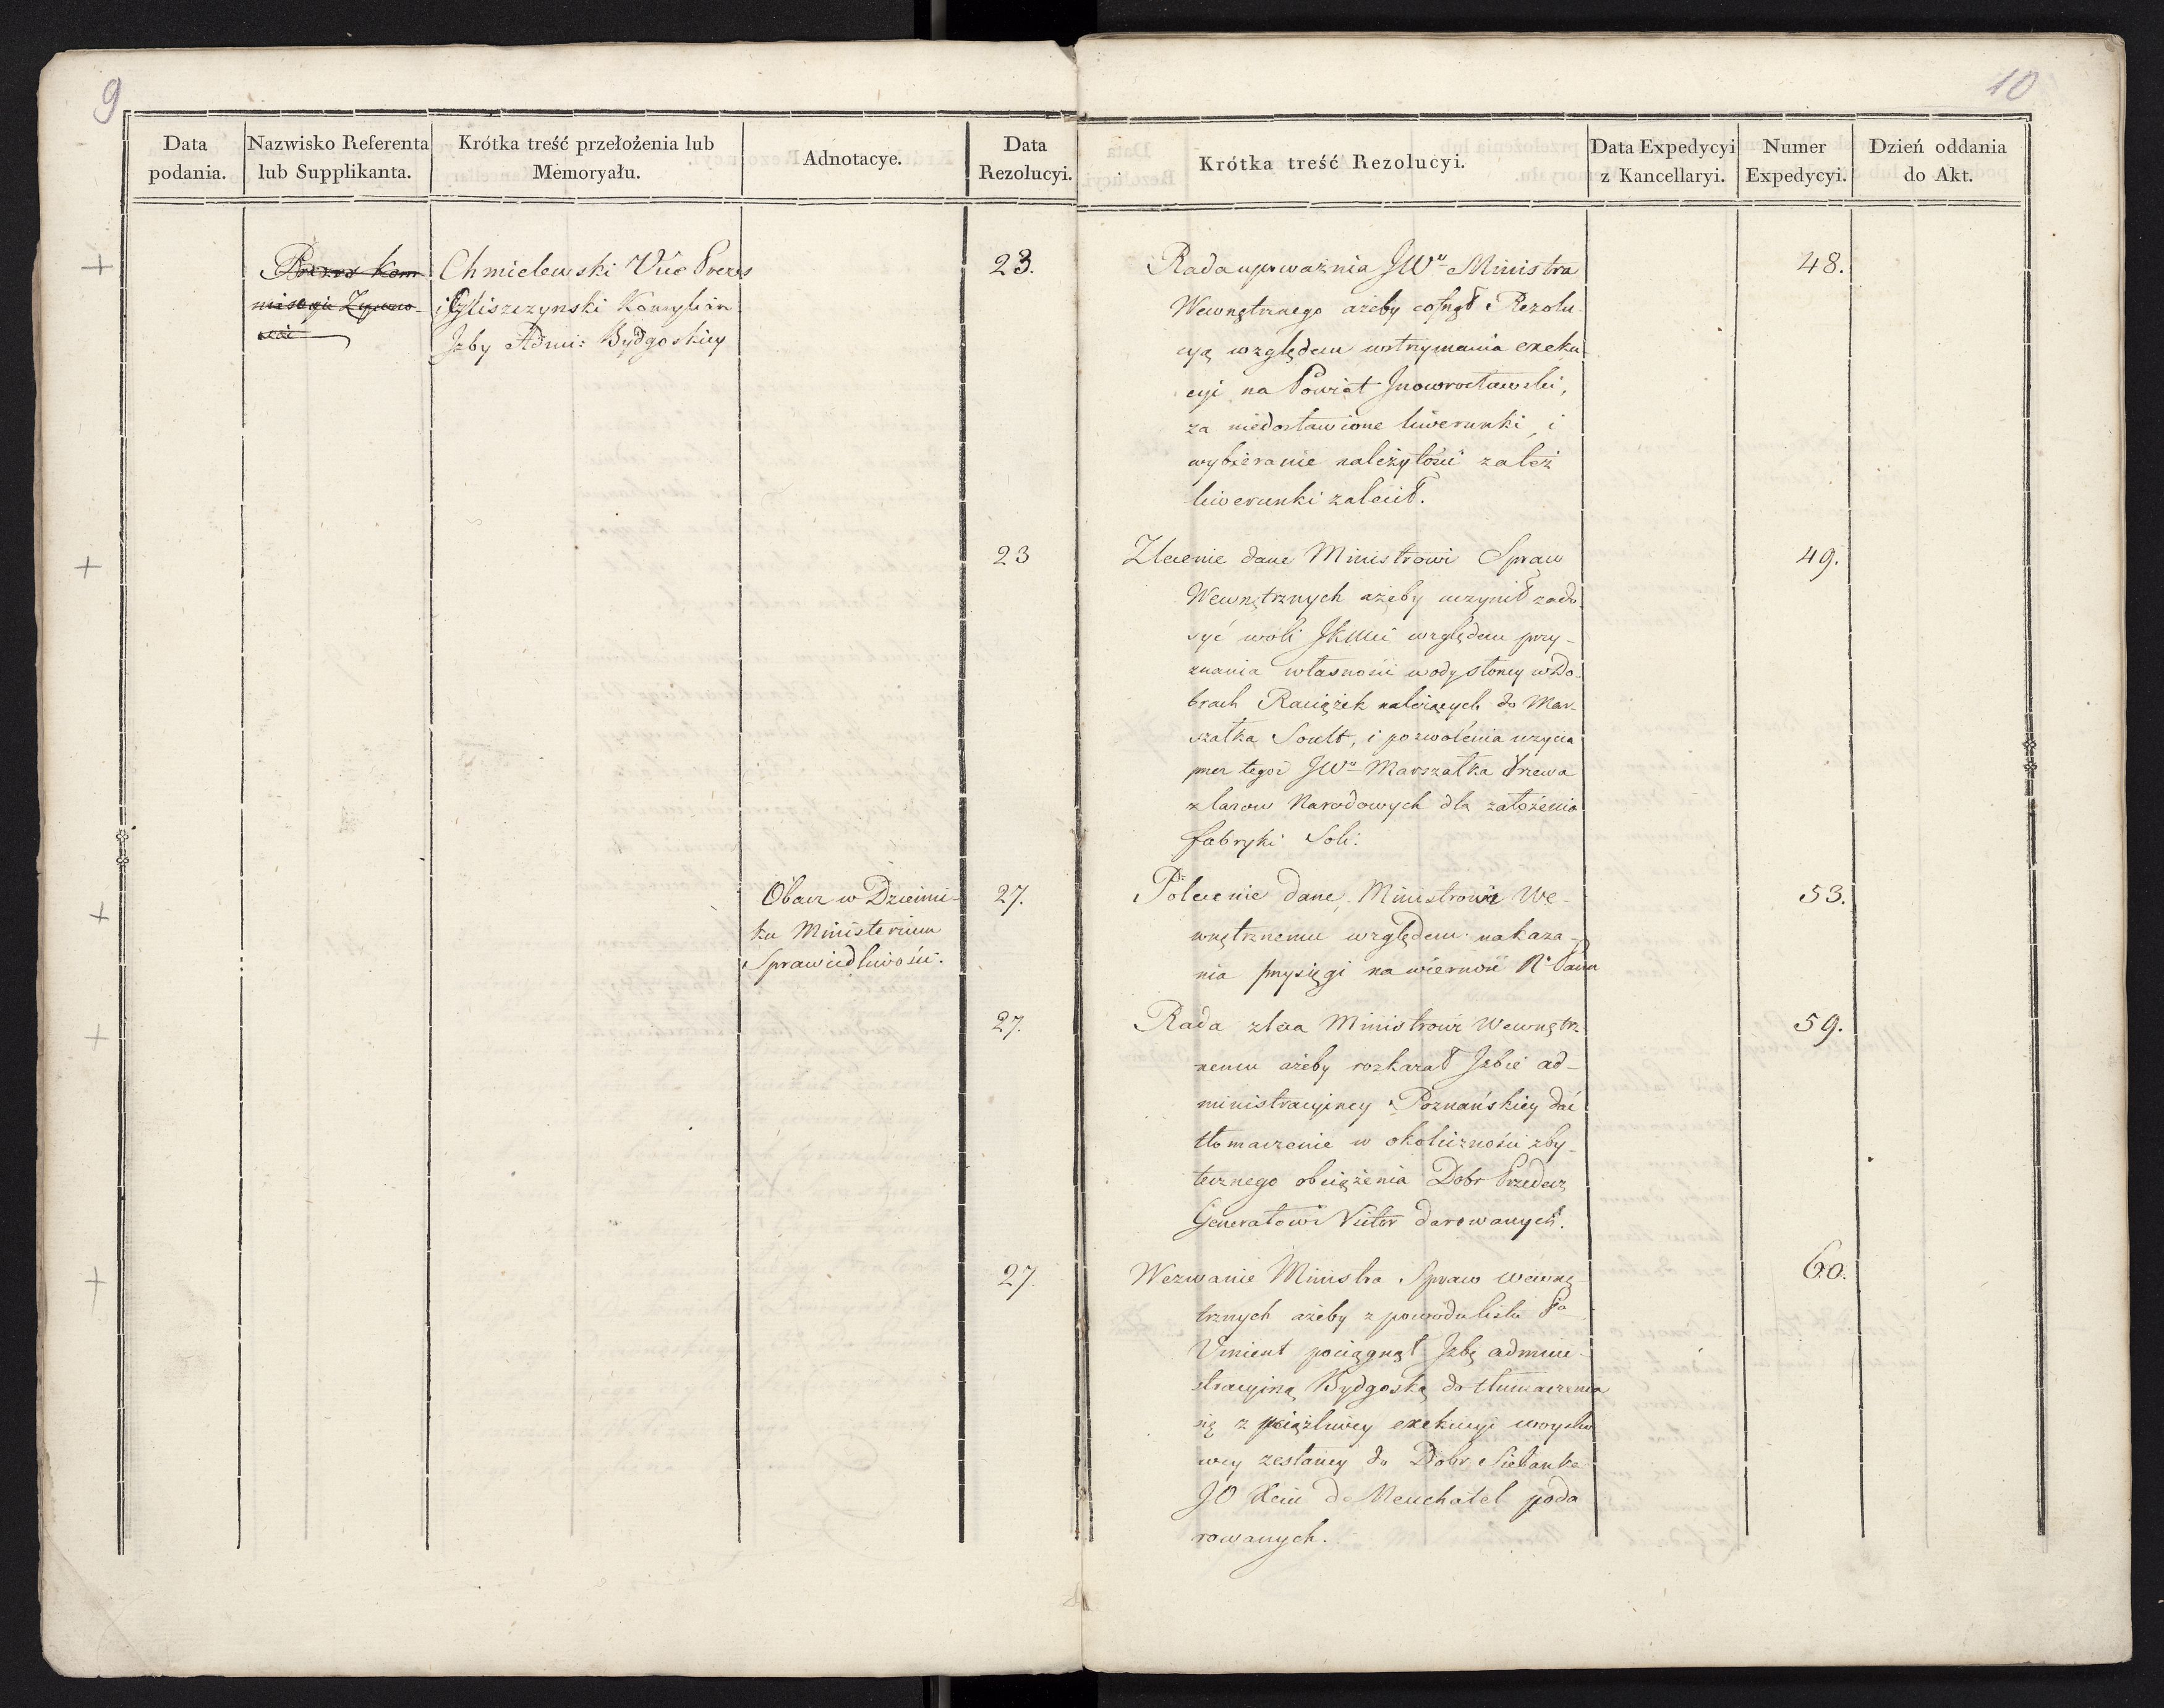 9
10
Data podania.
Nazwisko Referenta lub Supplikanta.
Krótka treść przełożenia lub Memoryału.
Adnotacye.
Data Rezolucyi.
Krótka treść Rezolucyi.
Data Expedycyi z Kancellaryi.
Numer Expedycyi.
Dzień oddania do Akt.
+
Prezes Kom
missyi
Chmielewski Vice Prezes
i Gliszczynski Konsyliarz
Jzby Admi: Bydgoskiey
23.
Rada upoważnia JWo Ministra
Wewnętrznego ażeby cofnął Rezolu-
cyą względem wstrzymania exeku
cyi na Powiat Jnowrocławski,
za niedostawione liwerunki, i
wybieranie należytości za też
liwerunki zalecił.
48.
+
23
Zlecenie dane Ministrowi Spraw
Wewnętrznych ażeby uczynił zado
syć woli JKMci względem przy-
znania własności wody słoney w Do-
brach Raciążek należących do Mar-
szałka Soult, i pozwolenia użycia
przez tegoż JWo Marszałka drzewa
z lasow Narodowych dla założenia
fabryki Soli.
49.
+
Obacz w Dzienni-
ku Ministerium
Sprawiedliwości.
27.
Polecenie dane Ministrowi We-
wnętrznemu względem nakaza-
nia przysięgi na wierność N. Panu
53.
+
27.
Rada zleca Ministrowi Wewnętrz
nemu ażeby rozkazał Jzbie ad-
ministracyiney Poznańskiey dać
tłomaczenie w okoliczności zby-
tecznego obciążenia Dobr Przedecz
Generałowi Victor darowanych.
59.
+
27.
Wezwanie Ministra Spraw wewnę
trznych ażeby z powodu listu Pa
Vincent pociągnął Jzbę admini-
stracyiną Bydgoską do tłumaczenia
się z uciążliwey exekucyi woysko
wey zesłaney do Dobr Sielanka
JO Xciu de Neuchatel poda
rowanych.
60.